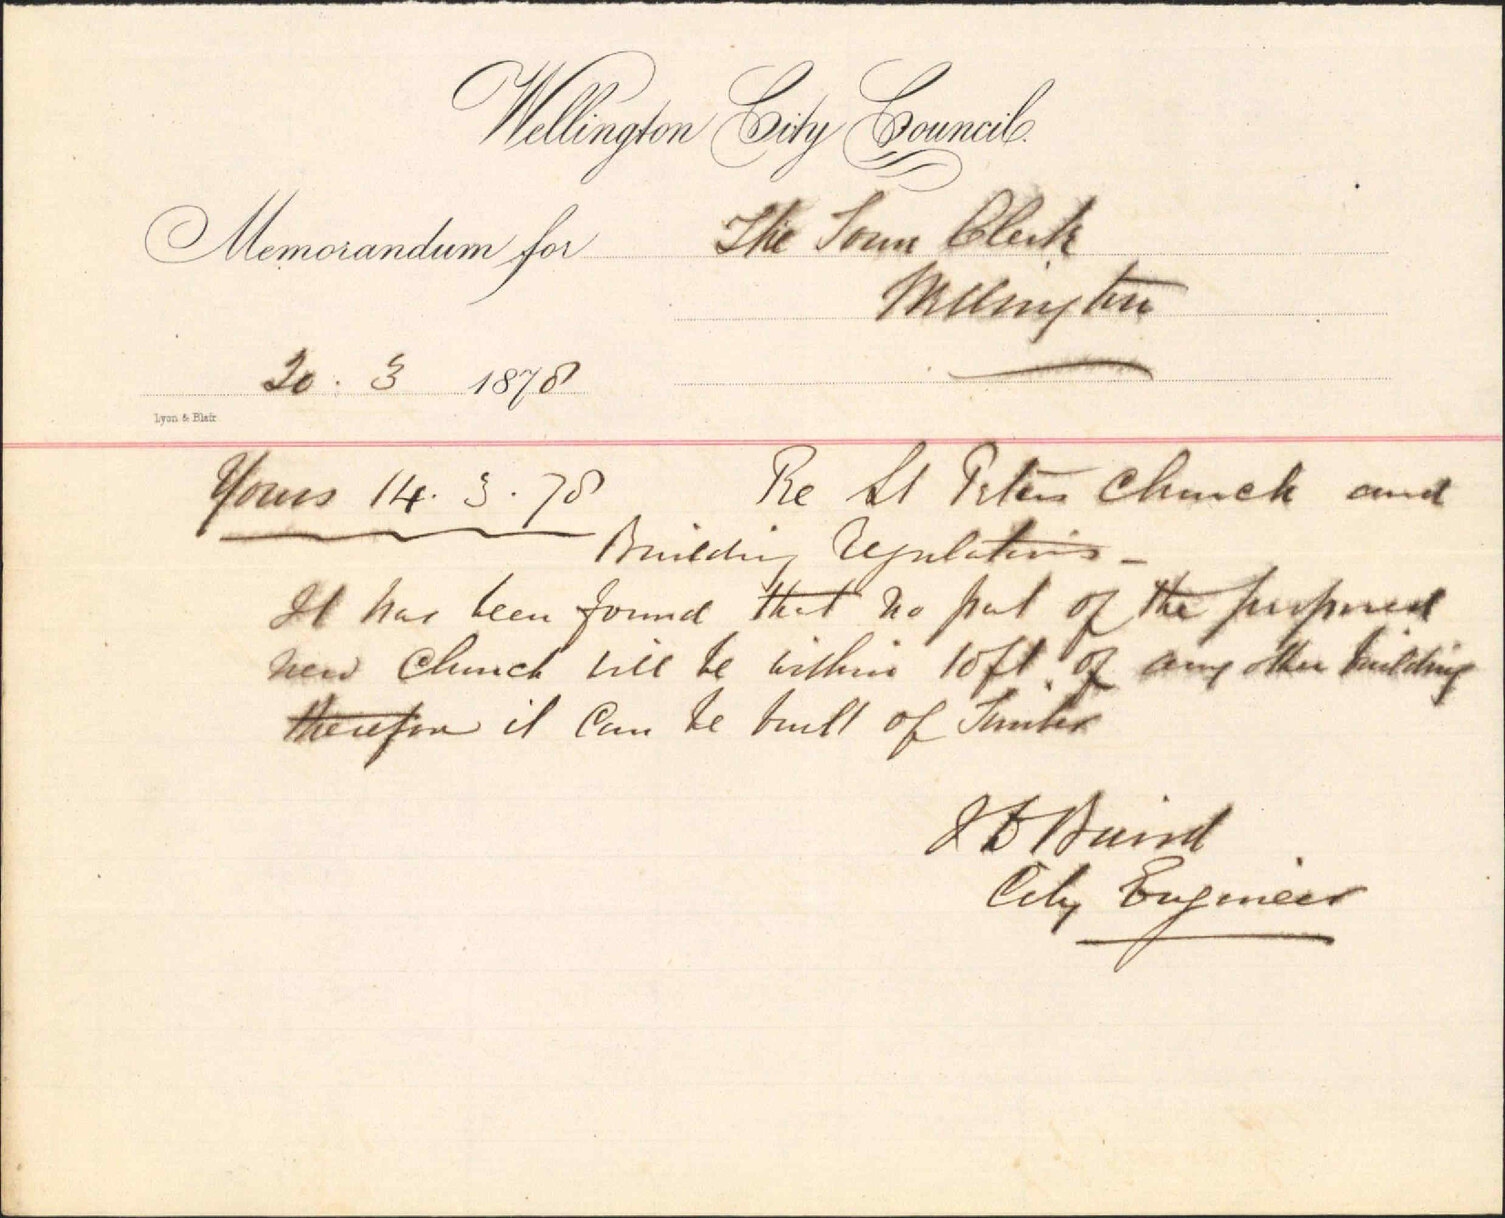 Wellington City Council.
Memorandum for The Town Clerk
Wellington
20. 3 1878
Lyon & Blair
Yours 14. 3. 78 Re St Peters Church and
Building Regulations -
It has been found that no part of the proposed
new Church will be within 10ft. of any other building
therefore it can be built of Timber
J D Baird
City Engineer